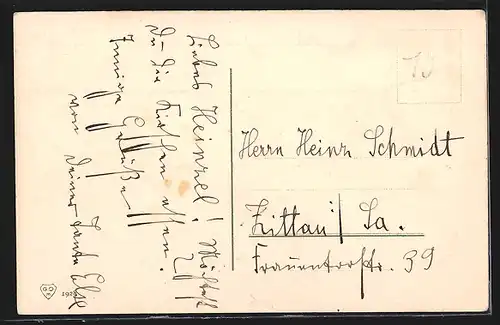 Liebes Heinzel! Möchtest
Du die Kirschen essen?
Innige Grüße
von Deiner Tante Else
Herrn Heinz Schmidt
Zittau i/ Sa.
Frauentorstr. 39